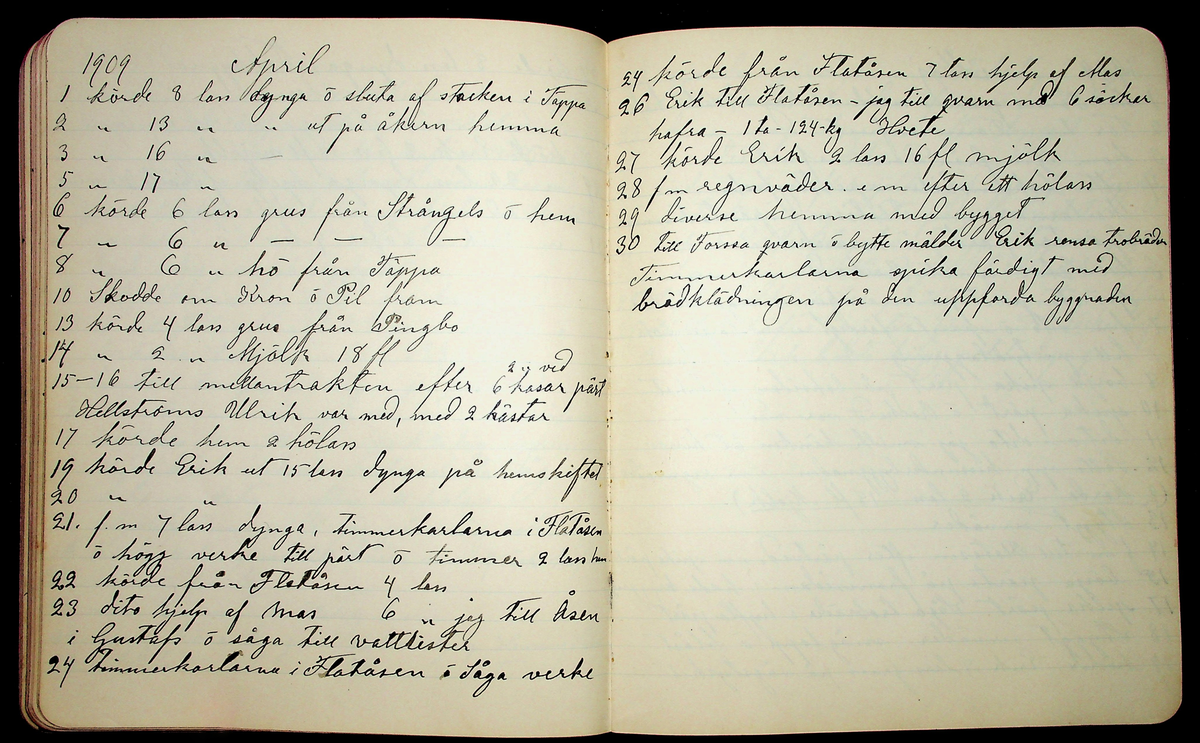 1909 April
1 körde 8 lass dynga ö sluta af stacken i Täppa
2 " 13 " " ut på åkern hemma
3 " 16 " —
5 " 17 "
6 körde 6 lass grus från Strångels ö hem
7 " 6 " — — —
8 " 6 " hö från Täppa
10 Skodde om Kron ö Pil fram
13 körde 4 lass grus från Pingbo
14 " 2 " Mjölk 18 fl
2 " ved
15-16 till mellantrakten efter 6 kasar pärt
Hellströms Ulrik var med, med 2 hästar
17 körde hem 2 hölass
19 körde Erik ut 15 lass dynga på hemskiftet
20 " "
21. f.m 7 lass dynga, timmerkarlarna i Flatåsen
ö högg verke till pärt ö timmer 2 lass hem
22 körde från Flatåsen 4 lass
23 dito hjelp af Mas 6 " jag till Åsen
i Gustafs ö såga till
24 timmerkarlarna i Flatåsen ö Såga verke
24 körde från Flatåsen 7 lass hjelp af Mas
26 Erik till Flatåsen - jag till qvarn med 6 säckar
hafra - 1 ta - 124 - kg Hvete
27 körde Erik 2 lass 16 fl mjölk
28 f m regnväder. e m efter ett hölass
29 diverse hemma med bygget
30 till Torssa qvarn ö bytte mälder Erik rensa trobräder
Timmerkarlarna spika färdigt med
brädklädningen på den uppförda byggnaden